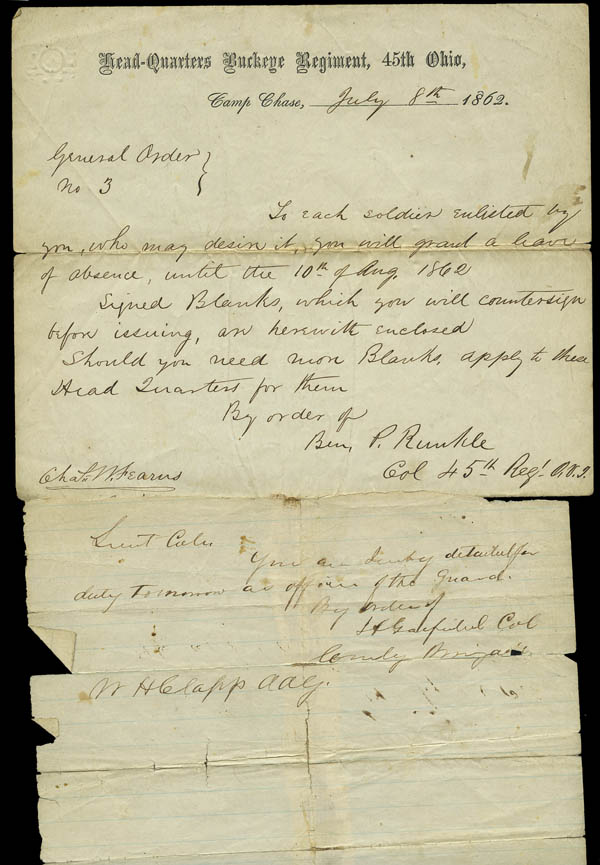 Head-Quarters Buckeye Regiment, 45th Ohio,
Camp Chase, July 8th 1862.
General Order }
No 3
To each soldier enlisted by
you, who may desire it, you will grant a leave
of absence, until the 10th of Aug. 1862
Signed Blanks, which you will countersign
before issuing, are herewith enclosed
Should you need more Blanks, apply to these
Head Quarters for them
By order of
Ben. P. Runkle
Chas. W. Fearns
Col 45th Regt O.V.I.
Lieut
You are hereby detailed for
duty tomorrow as officer of the Guard.
By order of
Garfield Col
Comdg Brigade
W H Clapp AAG.